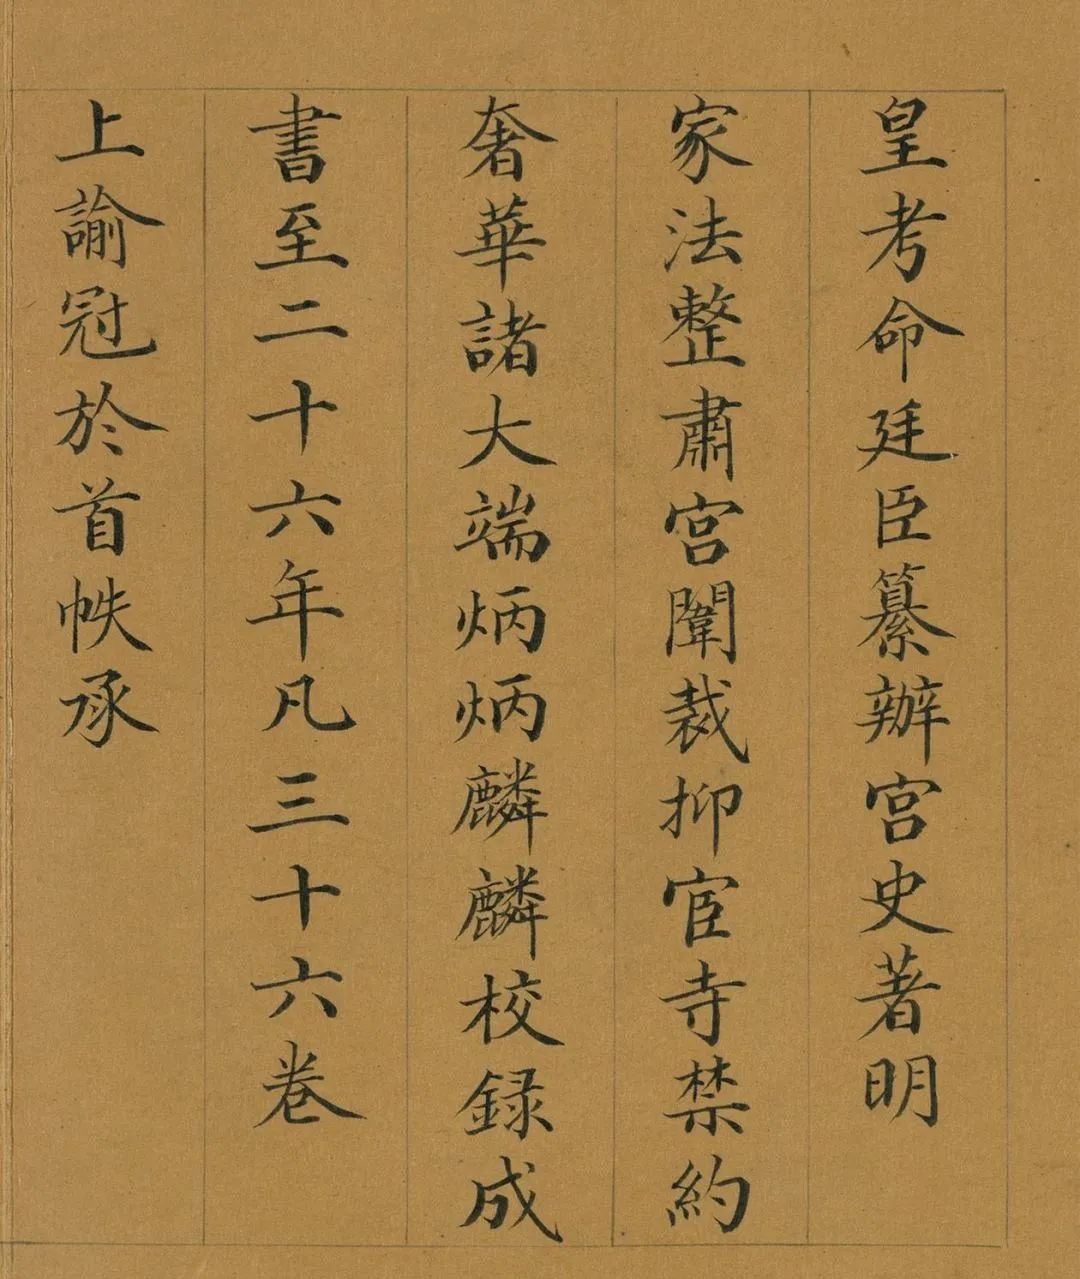 皇考命廷臣纂辦宮史著明
家法整肅宮闈裁抑宦寺禁約
奢華諸大端炳炳麟麟校録成
書至二十六年凡三十六卷
上諭冠於首帙承